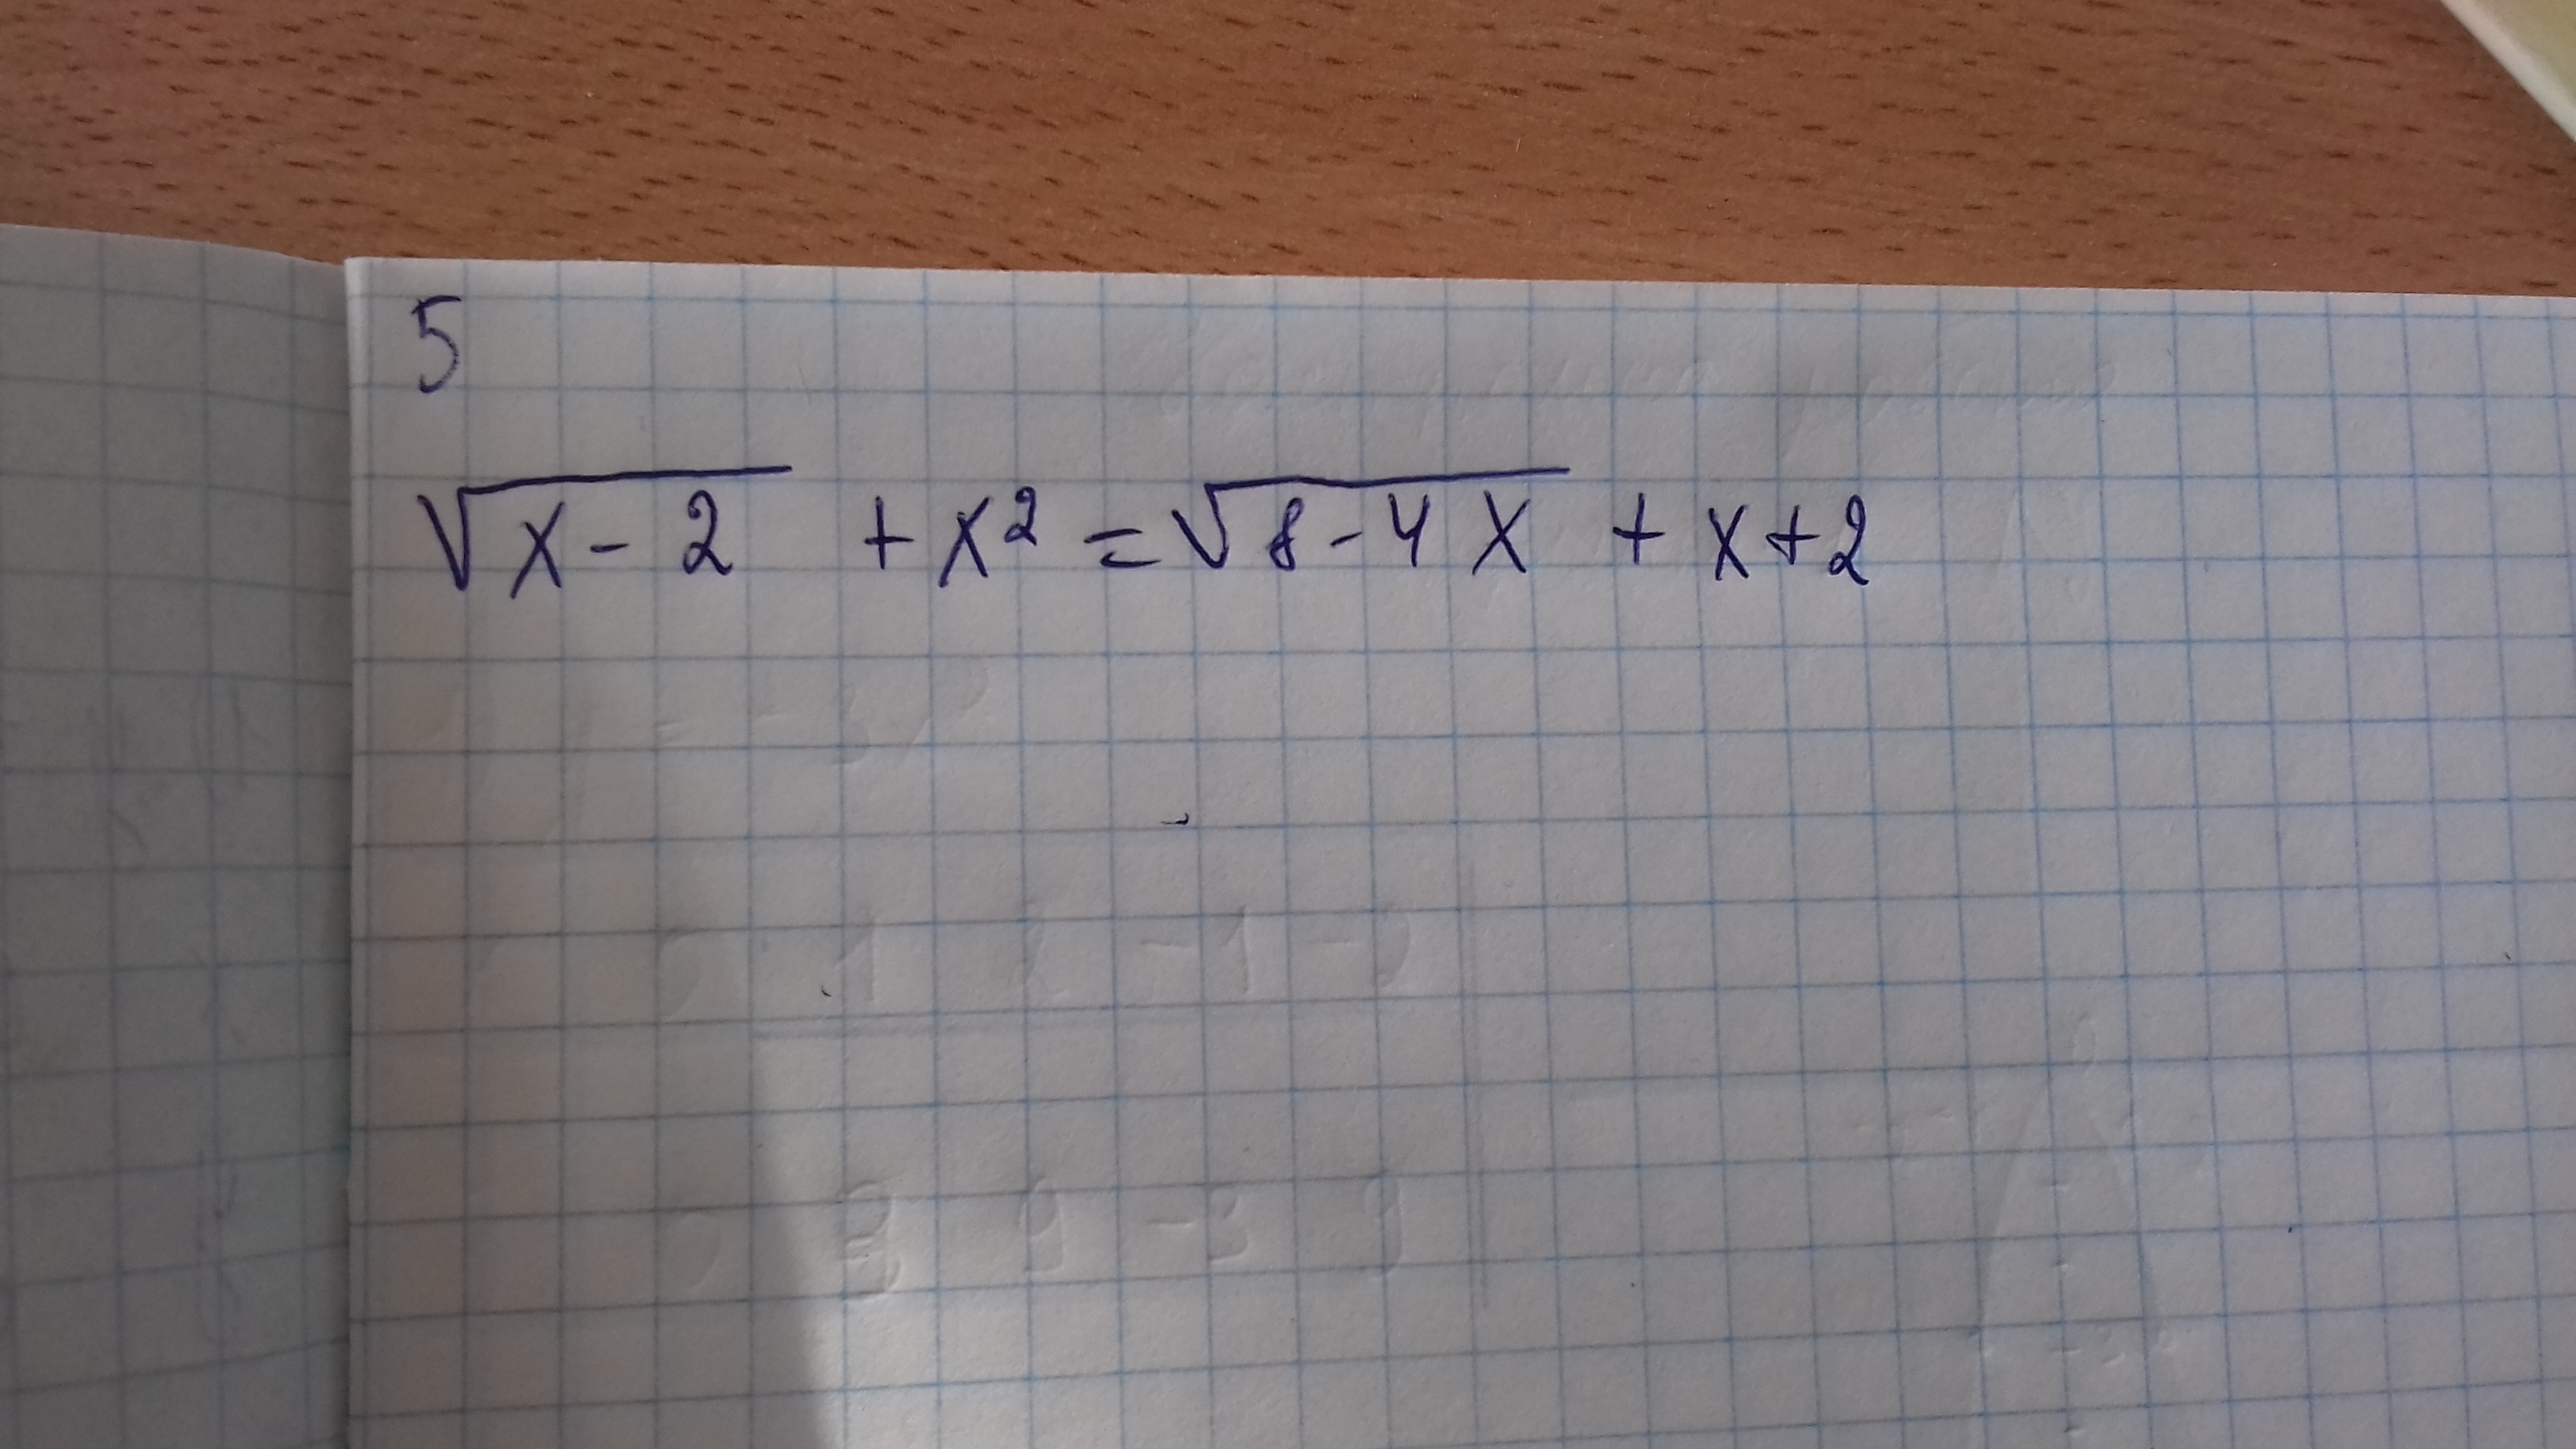 5
√(x - 2) + x² = √(8 - 4x) + x + 2